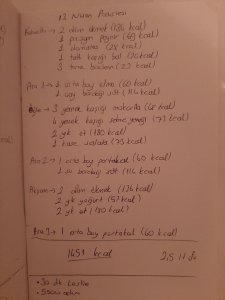 12 Nisan Pazartesi
Kahvaltı → 2 dilim ekmek (136 kcal)
1 parça peynir (69 kcal)
1 domates (25 kcal)
1 tatlı kaşığı bal (20 kcal)
3 tane (23 kcal)
Ara 1 → 1 orta boy elma (60 kcal)
1 su bardağı süt (114 kcal)
Öğle → 3 yemek kaşığı makarna (kcal)
4 yemek kaşığı sebze yemeği (73 kcal)
2 yk et (180 kcal)
1 kase salata (73 kcal)
Ara 2 → 1 orta boy portakal (60 kcal)
1 su bardağı süt (114 kcal)
Akşam → 2 dilim ekmek (136 kcal)
2 yk yoğurt (kcal)
2 yk et (180 kcal)
Ara 3 → 1 orta boy portakal (60 kcal)
1451 kcal
2,5 lt Su
• 30 dk
• 5500 adım